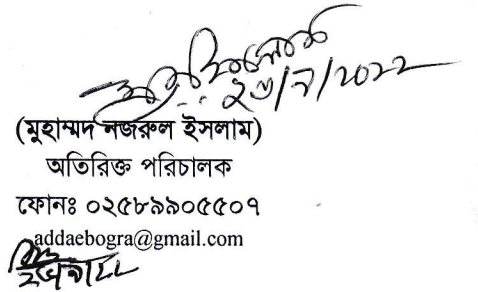 ২৬/৭/২০২২
(মুহাম্মদ নজরুল ইসলাম)
অতিরিক্ত পরিচালক
ফোনঃ ০২৫৮৯৯০৫৫০৭
addaebogra@gmail.com